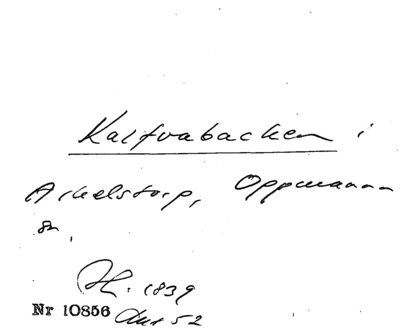 Kalfvabacken i
Arkelstorp, Oppmanna
sn.
1839
Nr 10856 52